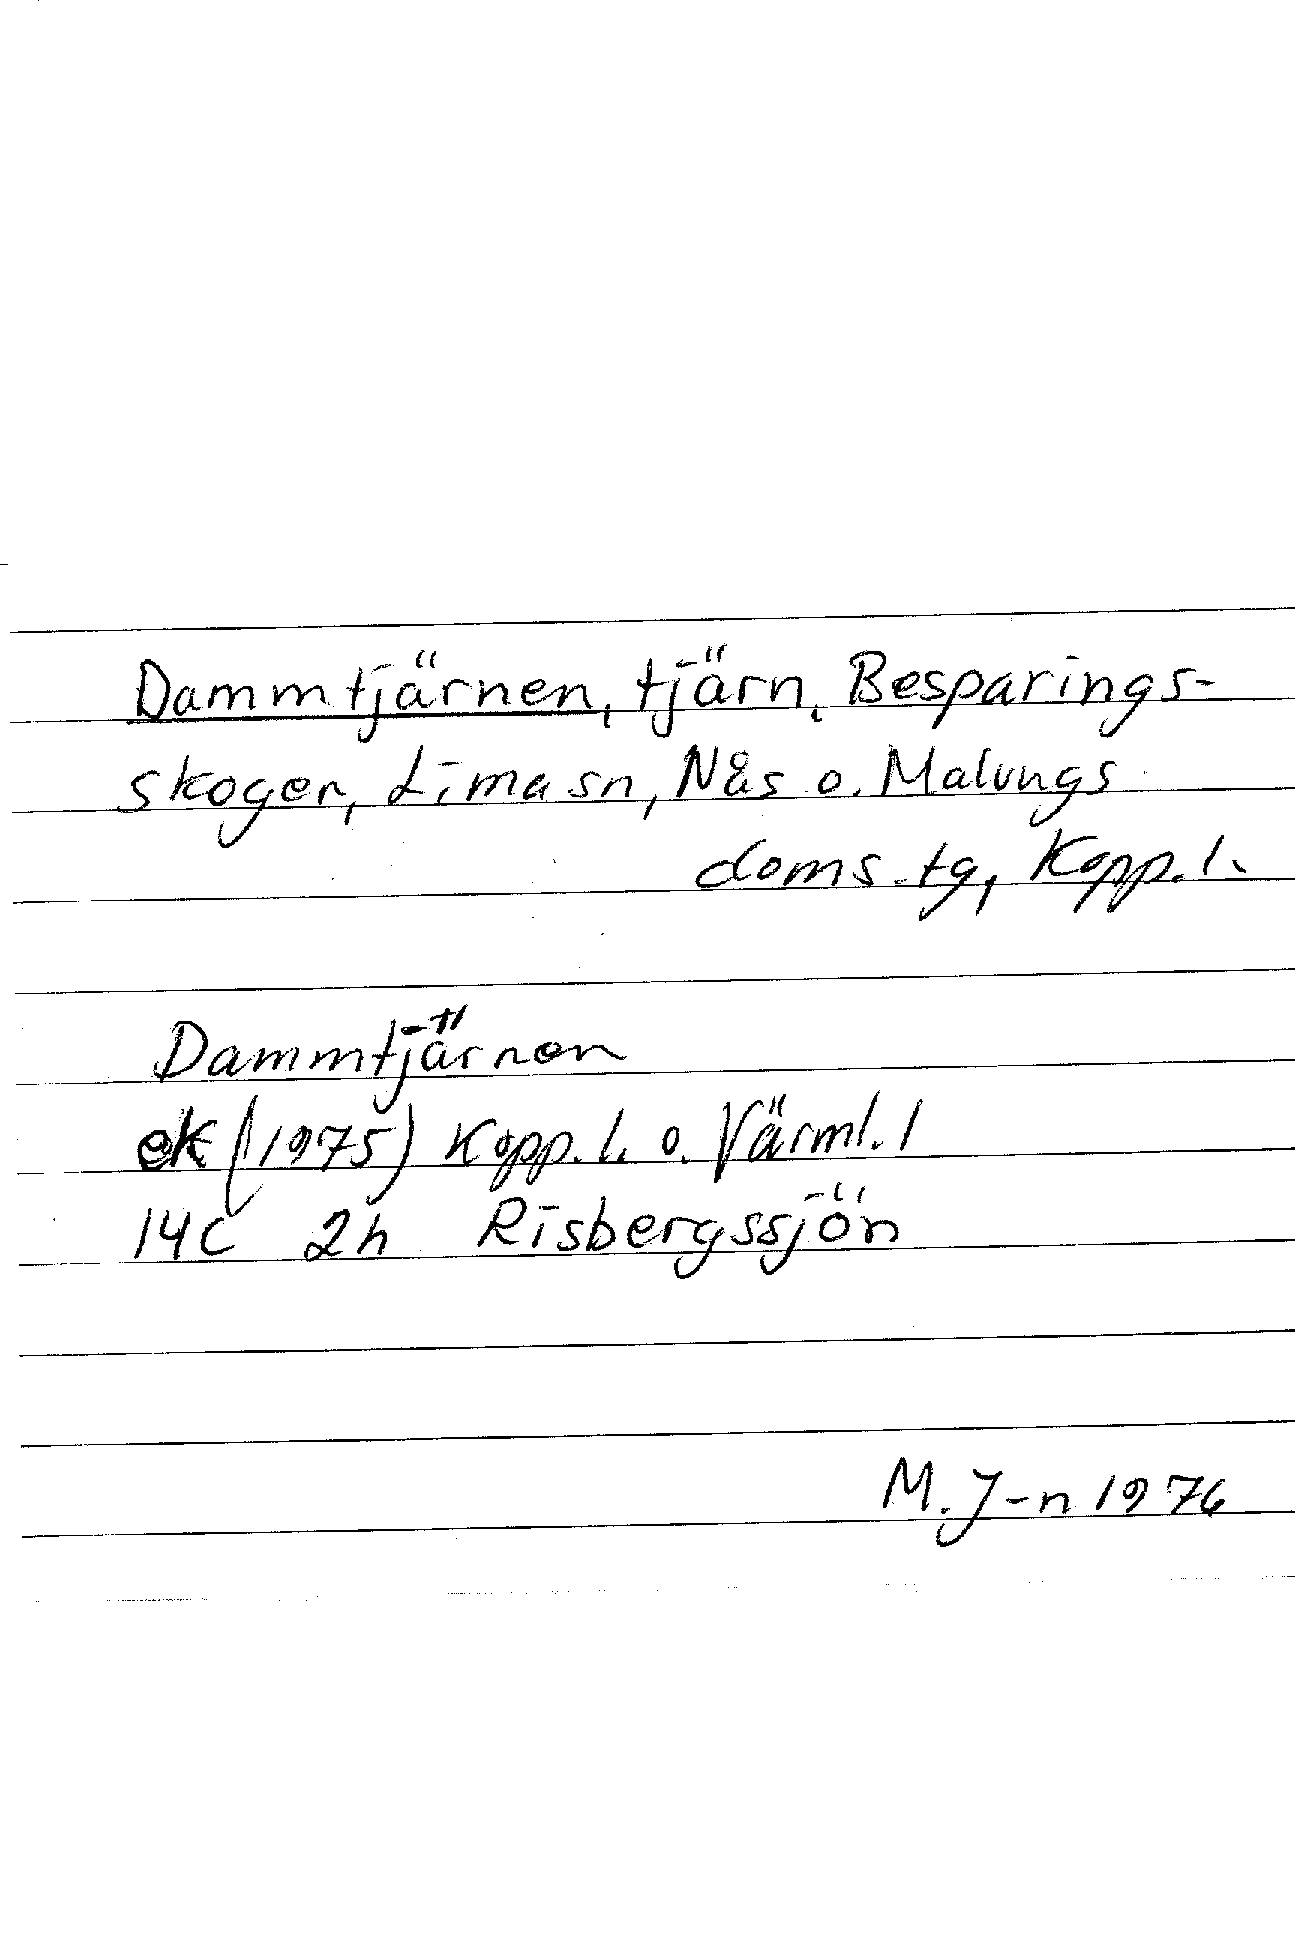 Dammtjärnen, tjärn, Besparings-
skogen, Lima sn, Nås o. Malungs
doms.tg, Kopp.l.
Dammtjärnen
ek (1975) Kopp.l. o. Värml.l
14C 2h Risbergssjön
M.J-n 1976